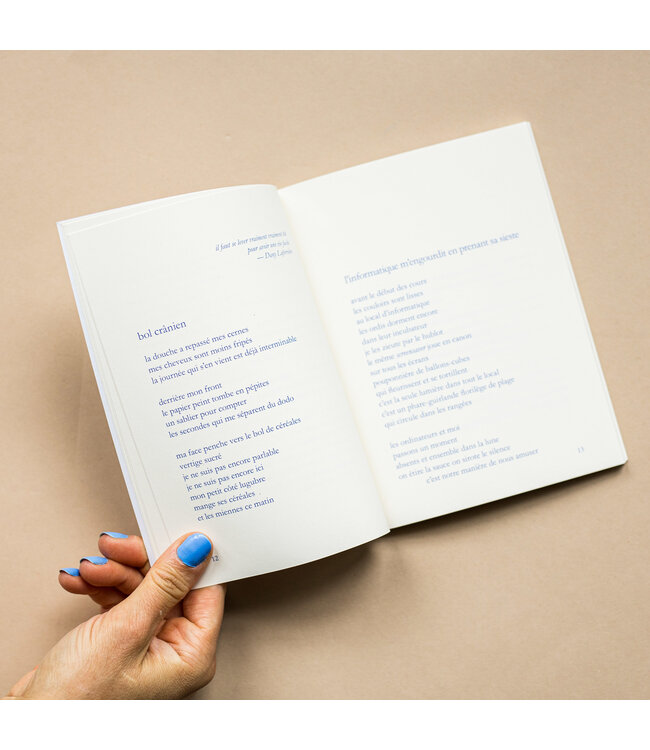 il faut se lever vraiment vraiment
pour avoir
— Dany Laferrière
bol crânien
la douche a repassé mes cernes
mes cheveux sont moins fripés
la journée qui s'en vient est déjà interminable
derrière mon front
le papier peint tombe en pépites
un sablier pour compter
les secondes qui me séparent du dodo
ma face penche vers le bol de céréales
vertige sucré
je ne suis pas encore parlable
je ne suis pas encore ici
mon petit côté lugubre
mange ses céréales
et les miennes ce matin
12
l'informatique m'engourdit en prenant sa sieste
avant le début des cours
les couloirs sont lisses
au local d'informatique
les ordis dorment encore
dans leur incubateur
je les zieute par le hublot
le même screensaver joue en canon
sur tous les écrans
pouponnière de ballons-cubes
qui fleurissent et se tortillent
c'est la seule lumière dans tout le local
c'est un phare-guirlande florilège de plage
qui circule dans les rangées
les ordinateurs et moi
passons un moment
absents et ensemble dans la lune
on étire la sauce on sirote le silence
c'est notre manière de nous amuser
13